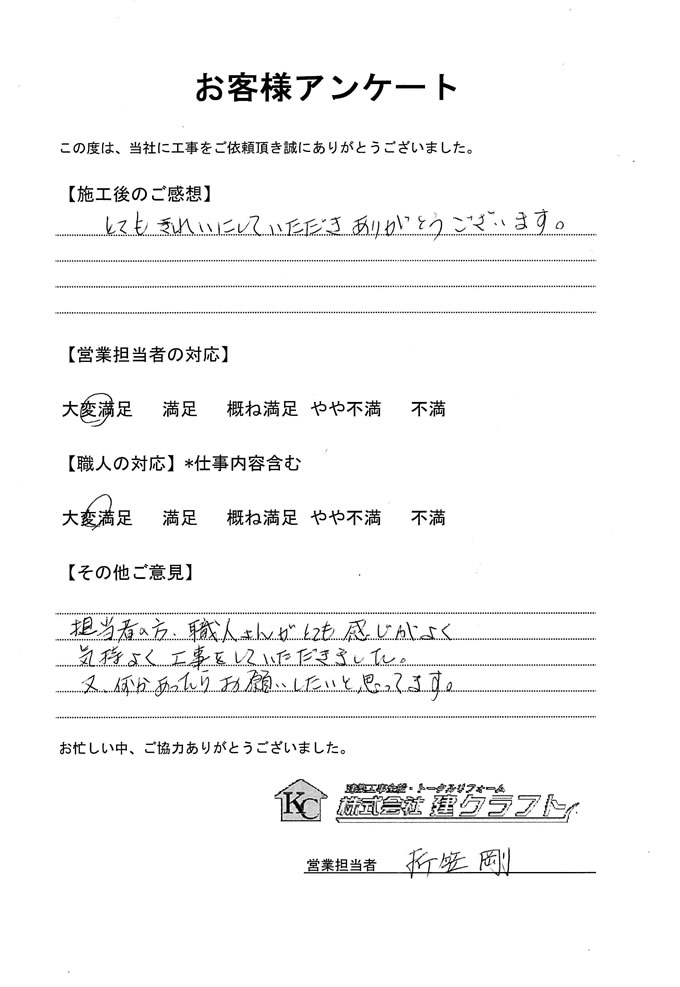 お客様アンケート
この度は、当社に工事をご依頼頂き誠にありがとうございました。
【施工後のご感想】
とてもきれいにしていただきありがとうございます。
【営業担当者の対応】
大変満足 満足 概ね満足 やや不満 不満
【職人の対応】*仕事内容含む
大変満足 満足 概ね満足 やや不満 不満
【その他ご意見】
担当者の方、職人さんがとても感じがよく
気持よく工事をしていただきました。
又、何かあったらお願いしたいと思ってます。
お忙しい中、ご協力ありがとうございました。
建築工事全般・トータルリフォーム
KC 株式会社 建クラフト
営業担当者 折笠 剛